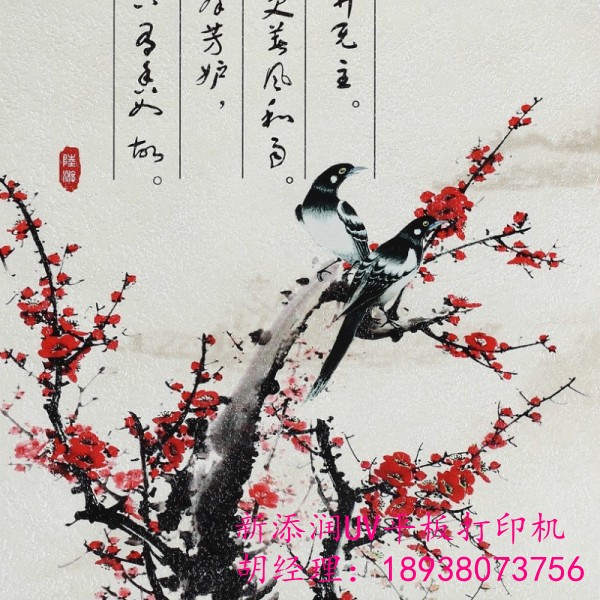 开无主。
更著风和雨。
群芳妒，
只有香如故。
陸游
新添润UV平板打印机
胡经理：18938073756